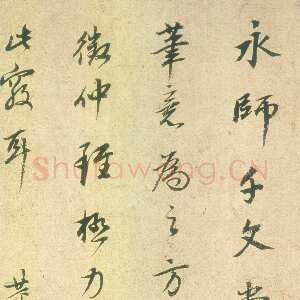 永師千文
筆意為之方
徵仲雖極力
此竅耳
Shufawang.CN